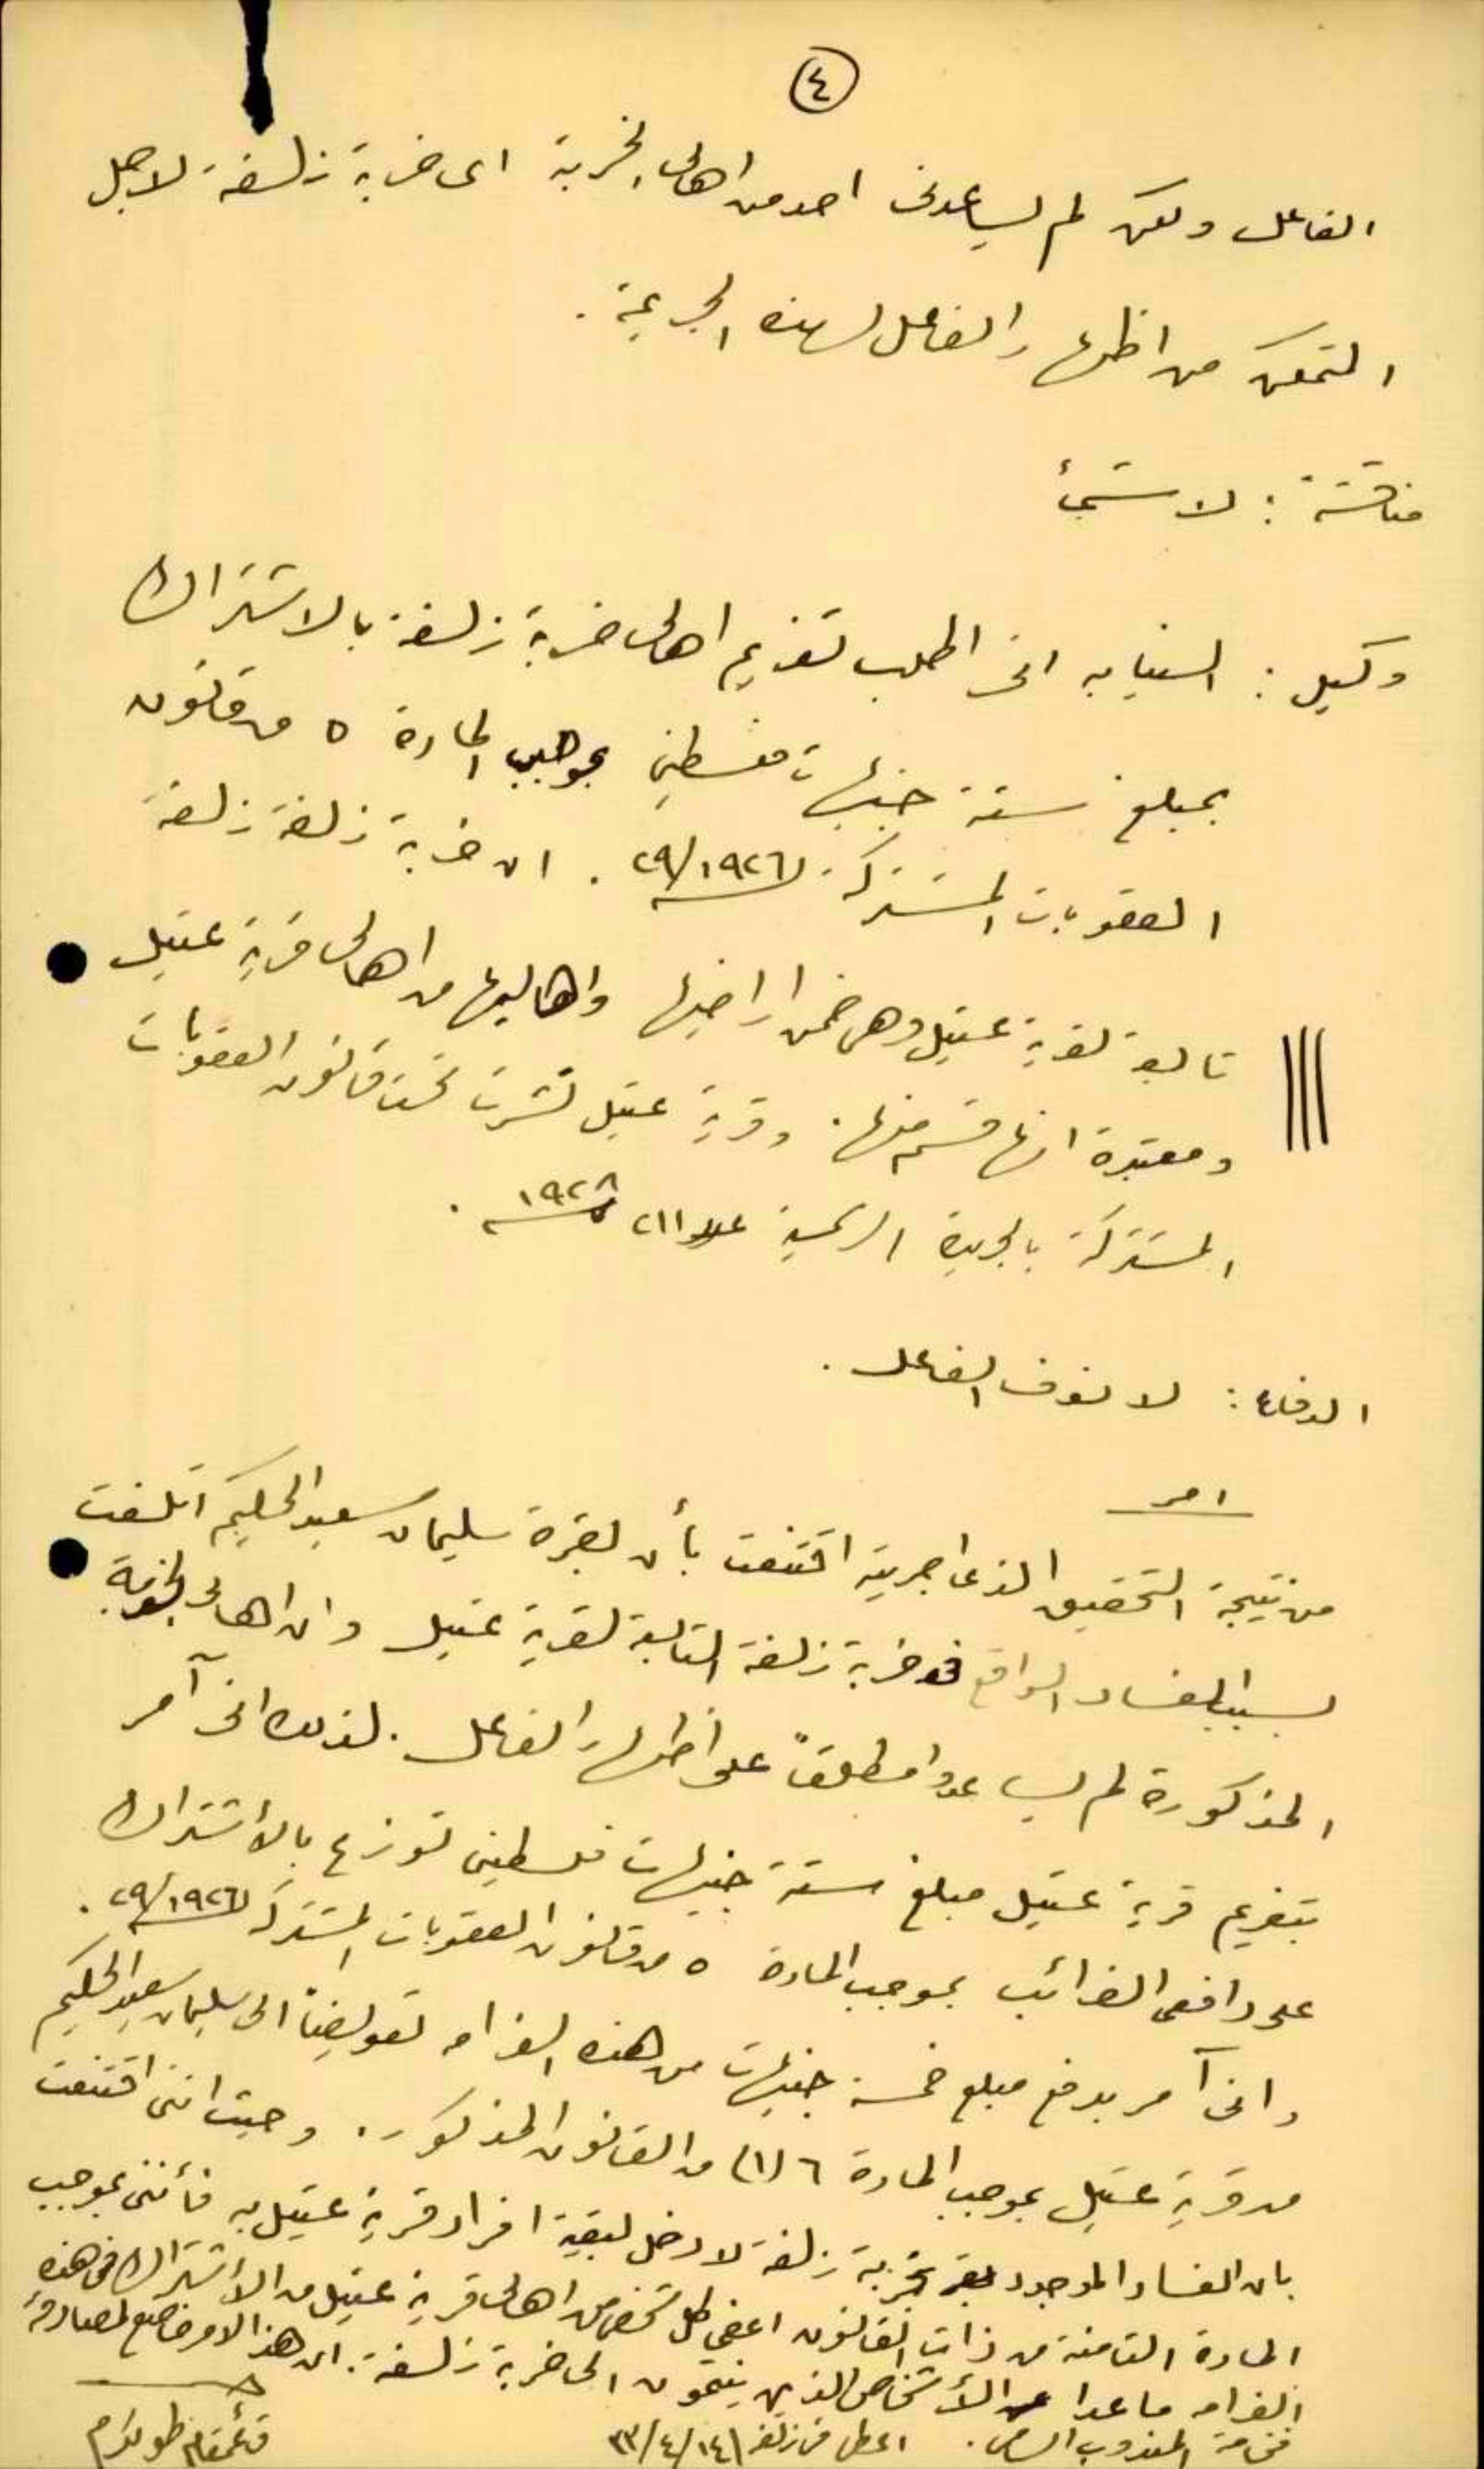 ٤
الفاعل ولكن لم يساعدني احد من اهالي الخربة اي خربة زلفة لاجل
التمكن من اظهار الفاعل لهذه الجريمة .
مناقشة : لا شيئ
وكيل : النيابه اني اطلب تغريم اهالي خربة زلفة بالاشتراك
بمبلغ ستة جنيهات فلسطيني بموجب المادة ٥ من قانون
العقوبات المشتركة ٢٩/١٩٢٦ . ان خربة زلفة زلفة
تابعة لقرية عتيل وهي ضمن اراضيها واهاليها من اهالي قرية عتيل
ومعتبرة انها قسم منها . وقرية عتيل نشرت تحت قانون العقوبات
المشتركة بالجريدة الرسمية عدد ٢١١ ١٩٢٨ .
الدفاع : لا نعرف الفاعل .
امر
من نتيجة التحقيق الذي اجريته اقتنعت بأن بقرة سليمان سعيد الحكيم اتلفت
بسبب الفساد الواقع في خربة زلفة التابعة لقرية عتيل وان اهالي الخربة
المذكورة لم يساعدوا مطلقاً على اظهار الفاعل . لذلك اني آمر
بتغريم قرية عتيل مبلغ ستة جنيهات فلسطيني توزع بالأشتراك
على دافعي الضرائب بموجب المادة ٥ من قانون العقوبات المشتركة ٢٩/١٩٢٦ .
واني آمر بدفع مبلغ خمسة جنيهات من هذه الغرامه تعويضاً الى سليمان سعيد الحكيم
من قرية عتيل بموجب المادة ٦ (١) من القانون المذكور . وحيث انني اقتنعت
بان الفساد الموجود بخربة زلفة لا دخل لبقية افراد قرية عتيل به فأنني بموجب
المادة الثامنة من ذات القانون اعفي كل شخص من اهالي قرية عتيل من الأشتراك في هذه
الغرامه ما عدا الأشخاص الذين ينتمون الى خربة زلفة . ان هذا الامر خاضع لمصادقة
فخامة المندوب السامي . اعطي في زلفة ١٤/٤/٣٣
قائمقام طولكرم